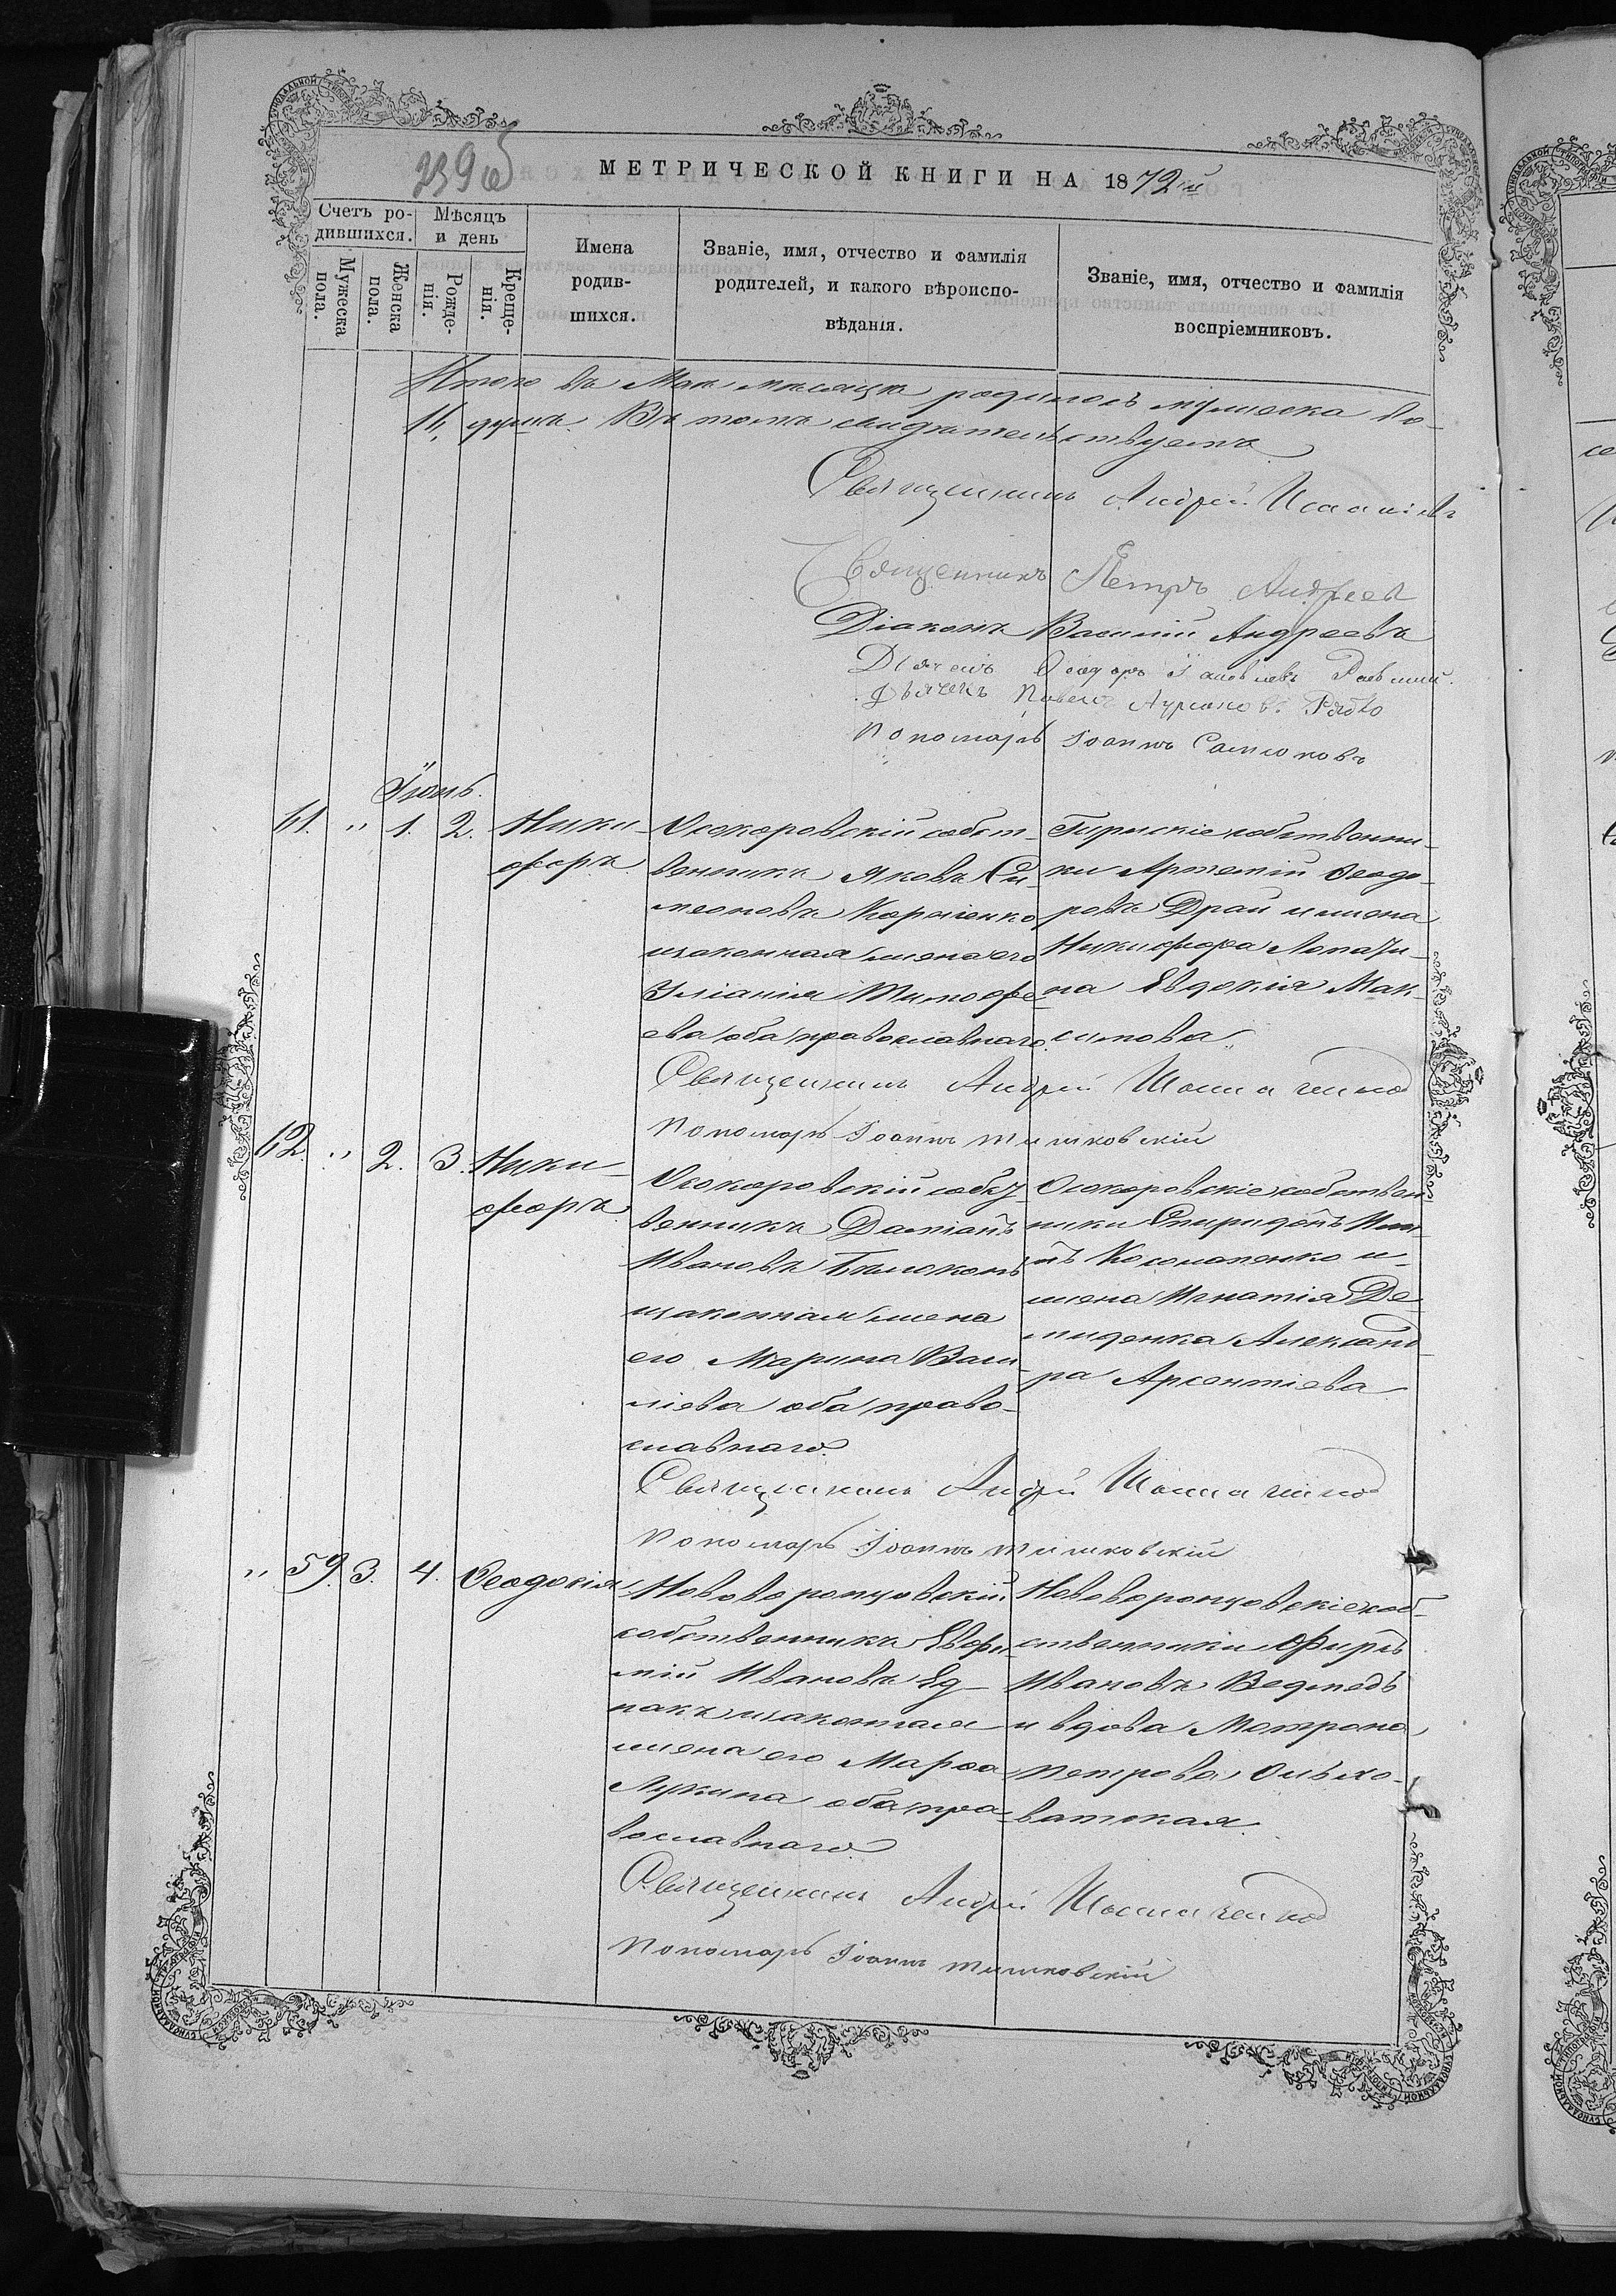 239 об
МЕТРИЧЕСКОЙ КНИГИ НА 1872й
Счетъ ро-
дившихся.
Мужеска
пола.
Женска
пола.
Мѣсяцъ
и день
Рожде-
нія.
Креще-
нія.
Имена
родив-
шихся.
Званіе, имя, отчество и фамилія
родителей, и какого вѣроиспо-
вѣданія.
Званіе, имя, отчество и фамилія
воспріемниковъ.
Итого въ Маѣ мѣсяцѣ родилось мужеска по-
11, душъ. Въ томъ свидѣтельствуемъ
Священникъ Андрей
Священникъ Петръ Андреевъ
Діаконъ Василій Андреевъ
Дьячекъ Ѳеодоръ Іаковлевъ
Дьячекъ Павелъ
Пономарь Іоаннъ
Іюнь.
61. " 1. 2.
Ники-
форъ
Осокоровскій собст-
венникъ Яковъ Си-
меоновъ
изаконная жена его
Уліанія Тимофе-
ева оба православнаго.
Гирискіе собственни-
ки Артемій Ѳеодо-
ровъ Драй и жена
Никифора Лопати-
на Евдокія Мак-
симова
Священникъ Андрей
Пономарь Іоаннъ Тишковскій
62. " 2. 3.
Ники-
форъ
Осокоровскій собст-
венникъ Даміанъ
Ивановъ Бѣлоконь
изаконная жена
его Марина Васи-
ліева оба право-
славнаго.
Осокоровскіе собствен-
ники Спиридонъ
и
жена Игнатія Де-
миденка Александ-
ра Арсентіева
Священникъ Андрей
Пономарь Іоаннъ Тишковскій
" 59. 3. 4.
Ѳеодосія
Нововоронцовскій
собственникъ Евфи-
мій Ивановъ Ед-
накъ изаконная
жена его Марѳа
Лукина оба пра-
вославнаго
Нововоронцовскіе соб-
ственники Фирсъ
Ивановъ Ведмедь
и вдова Матрона
Петрова Ольхо-
ватская.
Священникъ Андрей
Пономарь Іоаннъ Тишковскій